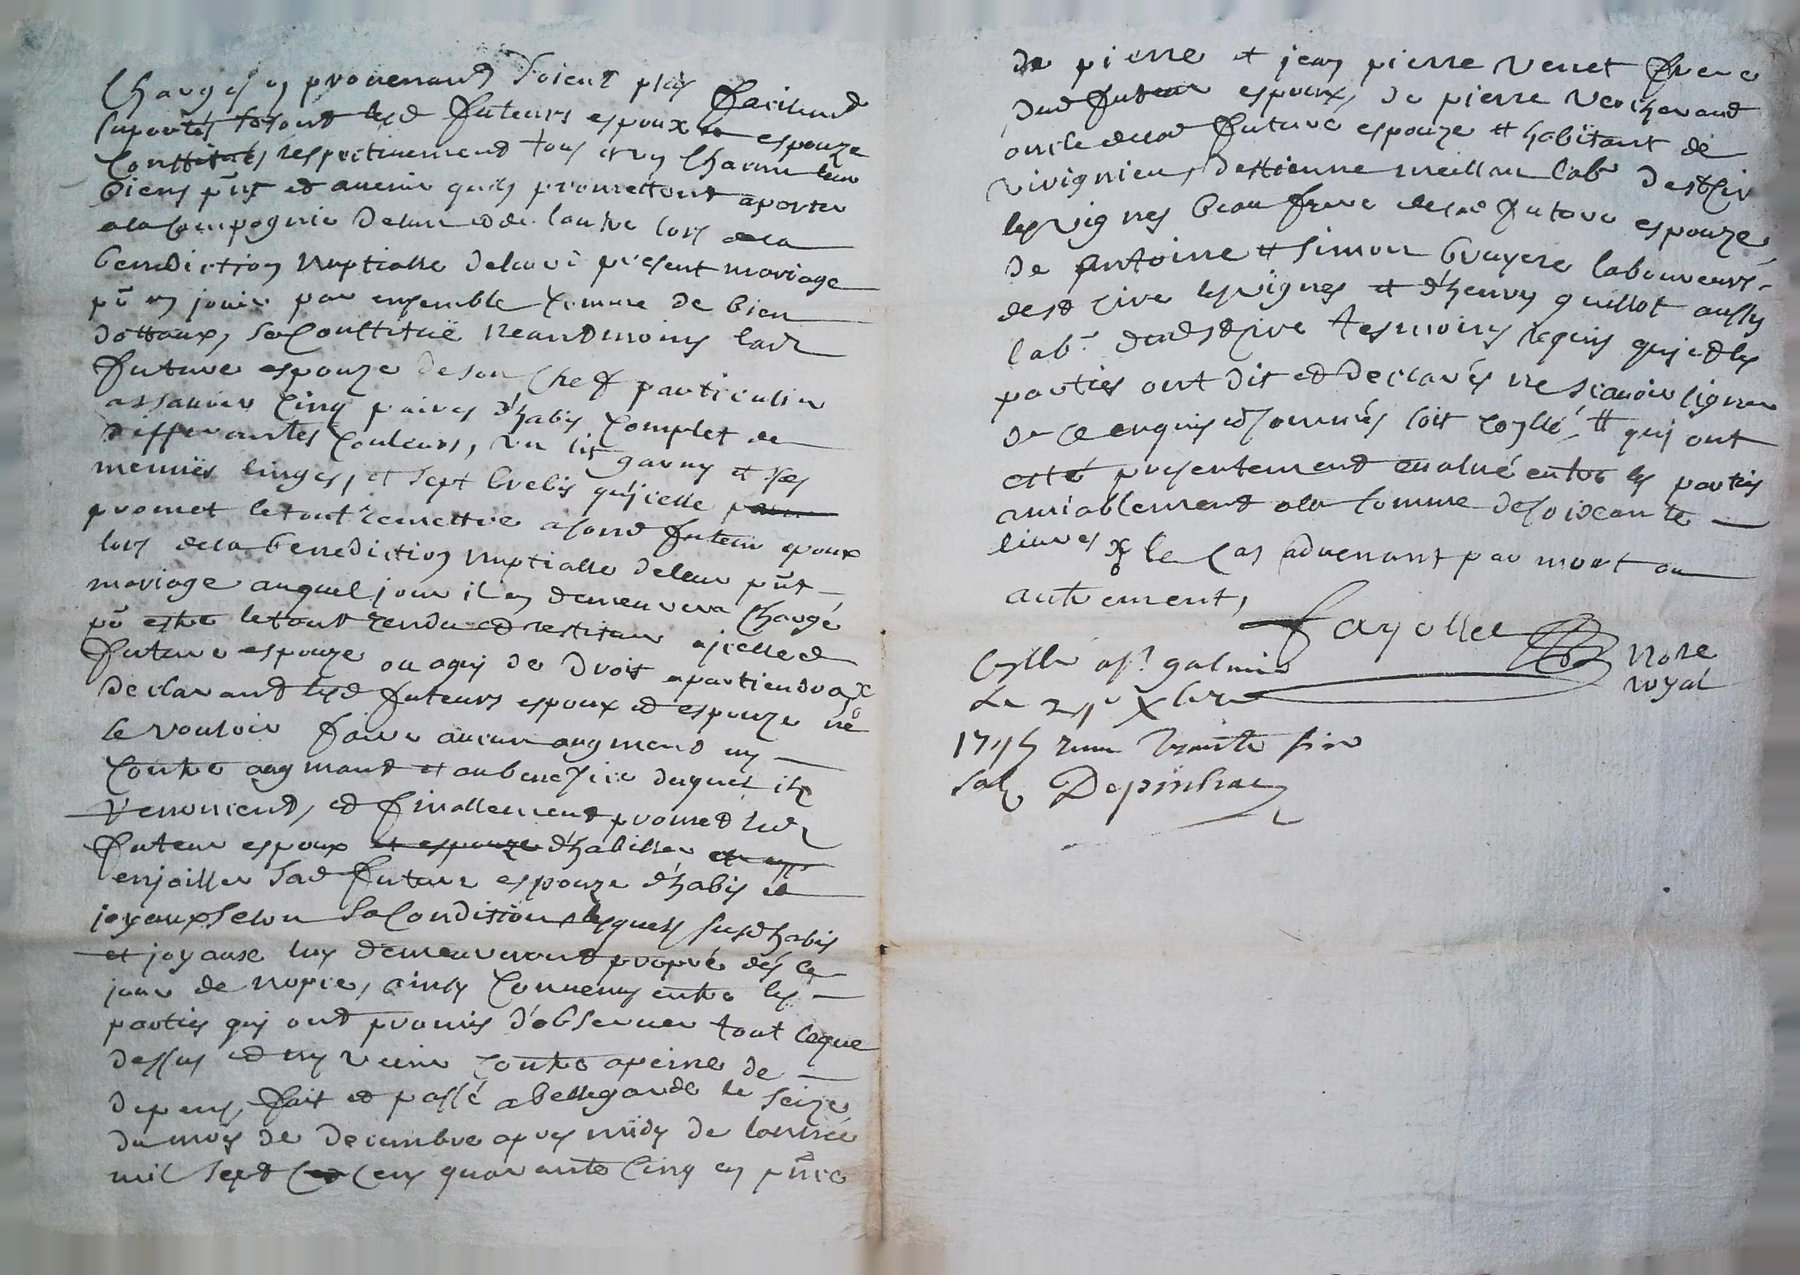 Charges en provenand soient plus facilemd
suportés sesont lesd futeurs espoux et espouze
Conttitués respectiuemend tous et un Chacun leur
biens pūts et auenir quils promettent aporter
a la Compagnie de lun et de lautre lors de la
benediction nuptialle de leur present mariage
pū en jouir par ensemble Comme de bien
dottaux, se Conttitüe neantmoins lad
future espouze de son Chef particulier
assauoir Cinq paires d'habis Complet de
differantes Couleurs, un lit garny et ses
menuës linges, et sept brebis qu'jcelle
promet le tout remettre a sond futeur epoux
lors de la benediction nuptialle de leur pūt
mariage auquel jour il en demeurera Chargé
pū estre le tout rendu et restitue a jcelle d
future espouze ou a qui de droit apartiendra x
declarand lesd futeurs espoux et espouze ne
se vouloir faire aucun augment ny
Contre augmant et au benefice duquel ils
renoncent, et finallement promet led
futeur espoux et espouze d'habiller et
enjoiller sad future espouze d'habis et
joyaux selon sa Condition lesquels susd habis
et joyaux luy demeureront propre dés le
jour de nopce, ainsy Conuenu entre les
parties qui ont promis d'obseruer tout ceque
dessus et ny venir Contre a peine de
depens, fait et passé a bellegarde le seize
du mois de decembre apres midy de lannée
mil sept Cens quarante Cinq en pūce
de pierre et jean pierre venet frere
dud futeur espoux, de pierre Vercherand
oncle de lad future espouze et habitant de
Vivignieu, destienne meillau labr de st Cir
les vignes beau frere de lad future espouze
de antoine et simon bruyere laboureurs
de st Cire les vignes et d'henry guillot aussy
labr. dud st Cire tesmoins requis qui et les
parties ont dit et declarés ne scauoir signer
de ce enquis et sommés soit Coyllé, # qui ont
esté presentement eualué entre les parties
amiablement a la somme de soixcante
liures x le Cas aduenant par mort ou
autrement,
fayolle
Nore
royal
Coyllé a st galmier
le 29e Xbre
1745 reçu trente six
sols Depinhac